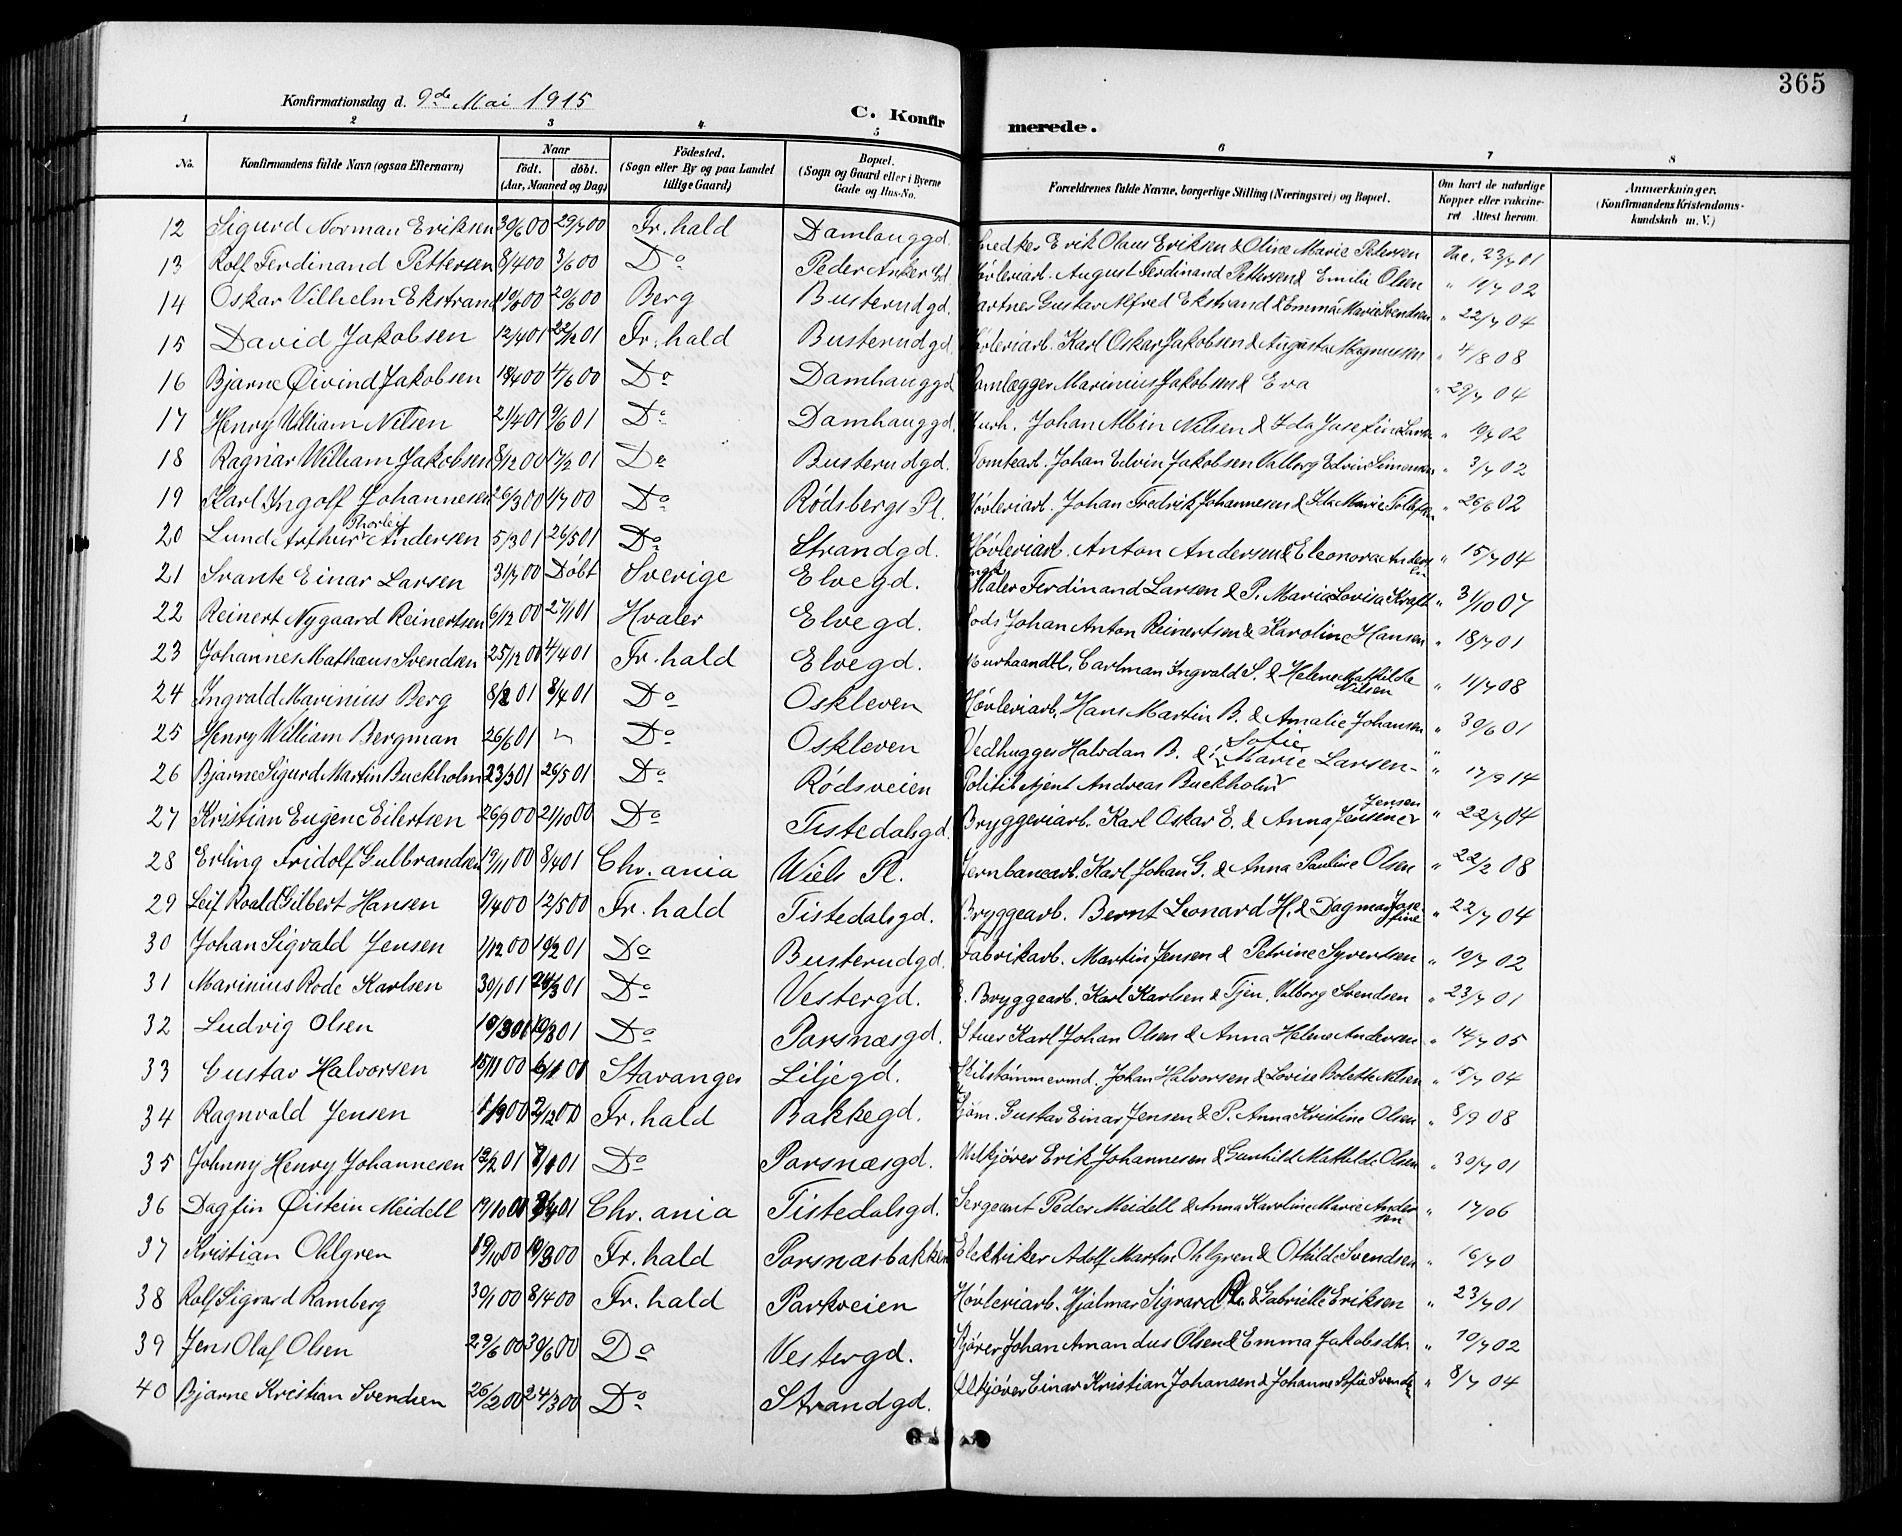 365
Konfirmationsdag d. 9de Mai 1915
C. Konfirmerede.
1 2 3 4 5 6 7 8
No. Konfirmandens fulde Navn (ogsaa Efternavn) Naar født. døbt. (Aar, Maaned og Dag) Fødested. (Sogn eller By og paa Landet tillige Gaard) Bopæl. (Sogn og Gaard eller i Byerne Gade og Hus-No. Forældrenes fulde Navne, borgerlige Stilling (Næringsvei) og Bopæl. Om havt de naturlige Kopper eller vakcineret Attest herom. Anmærkninger. (Konfirmandens Kristendomskundskab m. V.)
12 Sigurd Norman Eriksen 30/6 00 29/7 00 Fr.hald Damhauggd. Snedker Erik Olaus Eriksen & Oline Marie Petersen 23/7 01
13 Rolf Ferdinand Pettersen 8/4 00 3/6 00 Do Peder Ankers Gd Høvleriarb. August Ferdinand Petersen & Emilie Olsen " 19/7 02
14 Oskar Vilhelm Ekstrand 20/6 00 Berg Busterudgd. Gartner Gustav Alfred Ekstrand & Emma Marie Svendsen " 22/7 04
15 David Jakobsen 12/4 01 22/12 01 Fr.hald Busterudgd. Høvleriarb. Karl Oskar Jakobsen & Augusta Magnusen " 4/8 08
16 Bjarne Øivind Jakobsen 18/4 00 4/6 00 Do Damhauggd Marinius Jakobsen & Eva " 29/7 04
17 Henry William Nilsen 21/4 01 9/6 01 Do Damhauggd. Murh. Johan Albin Nilsen & Ida Josefine Larsen " 19/7 02
18 Ragnar William Jakobsen 8/12 00 17/2 01 Do Busterudgd. Tomtearb. Johan Edvin Jakobsen Valborg Edvin Simensen " 3/7 02
19 Karl Ingolf Johannesen 26/3 00 4/7 00 Do Rødsbergs Pl. Høvleriarb. Johan Fredrik Johannesen & Ida Marie " 26/6 02
20 Lund Arthur Thorleif Andersen 5/3 01 26/5 01 Do Strandgd. Høvleriarb. Anton Andersen & Eleonora Andersen " 15/7 04
21 Svante Einar Larsen 31/7 00 Døbt Sverige Elvegd. Maler Ferdinand Larsen & P. Maria Lovisa Kraft " 31/10 07
22 Reinert Nygaard Reinertsen 6/12 00 27/1 01 Hvaler Elvegd. Lods Johan Anton Reinertsen & Karoline Hansen " 18/7 01
23 Johannes Mathæus Svendsen 25/12 00 4/4 01 Fr.hald Elvegd. Murhaandtl. Carlman Ingvald S. & Helene Mathilde Nilsen " 11/7 08
24 Ingvald Marinius Berg 8/2 01 8/4 01 Do Oskleven Høvleriarb. Hans Martin B. & Amalie Johansen " 30/6 01
25 Henry William Bergman 26/6 01 Do Oskleven Vedhugger Halvdan B. & Sofie Marie Larsen "
26 Bjarne Sigurd Martin Buckholm 23/3 01 26/5 01 Do Rødsveien Politibetjent Andreas Buckholm " 17/9 14
27 Kristian Eugène Eilertsen 26/9 00 21/10 00 Do Tistedalsgd. Bryggeriarb. Karl Oskar E. & Anna Jensen " 22/7 04
28 Erling Fridolf Gulbrandsen 19/11 00 8/4 01 Chr.ania Wiels Pl. Jernbanearb. Karl Johan G. & Anna Pauline Olsen " 22/2 08
29 Leif Roald Gilbert Hansen 9/4 00 12/5 00 Fr.hald Tistedalsgd. Bryggearb. Bernt Leonard H. & Dagmar Josefine " 22/7 04
30 Johan Sigvald Jensen 1/12 00 10/2 01 Do Busterudgd. Fabrikarb. Martin Jensen & Petrine Syvertsen " 19/7 02
31 Marinius Rode Karlsen 30/1 01 24/3 01 Do Vestergd. Bryggearb. Karl Karlsen & Tjen. Valborg Svendsen " 23/7 01
32 Ludvig Olsen Do Porsnæsgd. Stuer Karl Johan Olsen & Anna Helene Andersen " 14/7 05
33 Gustav Halvorsen 15/11 00 Stavanger Liljegd. Johan Halvorsen & Lovise Bolette Nilsen " 15/7 04
34 Ragnvald Jensen 1/9 00 2/12 00 Fr.hald Bakkegd. Sjøm. Gustav Einar Jensen & P. Anna Kristine Olsen " 8/9 08
35 Johnny Henry Johannesen 12/2 01 Do Porsnæsgd. Melkjører Erik Johannesen & Gunhilde Mathilde Olsen " 30/7 01
36 Dagfin Øistein Meidell 19/10 00 Chr.ania Tistedalsgd. Sergeant Peder Meidell & Anna Karoline Marie Andersen " 17/06
37 Kristian Ohlgren Fr.hald Porsnæsbakken Elektriker Adolf Martin Ohlgren & Othilde Svendsen " 16/7 0
38 Rolf Sigvard Ramberg 30/1 00 8/4 00 Fr.hald Parkveien Høvleriarb. Hjalmar Sigvard R. & Gabrielle Eriksen " 23/7 01
39 Jens Olaf Olsen 29/6 00 30/6 00 Do Vestergd. Kjører Johan Amandus Olsen & Emma Jakobsdtr. " 10/7 02
40 Bjarne Kristian Svendsen 26/2 00 24/3 00 Do Strandgd. Ølkjører Einar Kristian Johansen & Johanne Sofie Svends " 8/7 04